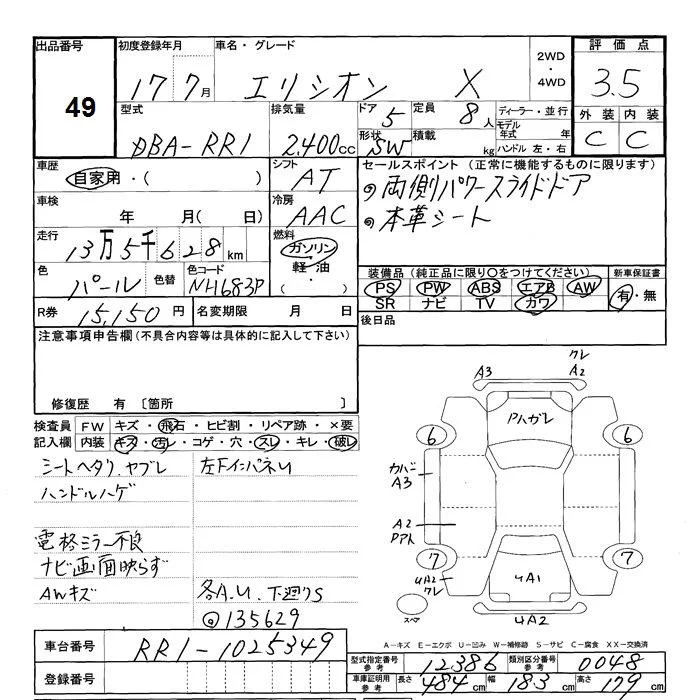 出品番号 初度登録年月 車名・グレード 2WD・4WD 評価点
49 17 7月 エリシオン X 3.5
型式 排気量 ドア 5 定員 8人 ディーラー・並行 外装 内装
DBA-RR1 2,400cc 形状 SW 積載 kg モデル年式 年 ハンドル 左・右 C C
車歴 シフト セールスポイント (正常に機能するものに限ります)
自家用・( ) AT ◎両側パワースライドドア
車検 冷房 ◎本革シート
年 月( 日) AAC
走行 燃料
13万5千628km ガソリン・軽油・( )
色 色替 色コード 装備品 (純正品に限り○をつけてください) 新車保証書
パール NH683P PS PW ABS エアB AW 有・無
SR ナビ TV カワ
R券 15,150円 名変期限 月 日 後日品
注意事項申告欄 (不具合内容等は具体的に記入して下さい)
修復歴 有 [箇所 ]
検査員記入欄 FW キズ・飛石・ヒビ割・リペア跡・×要
内装 キズ・汚レ・コゲ・穴・スレ・キレ・破レ
シートヘタリ、ヤブレ 左F インパネU
ハンドルハゲ
電格ミラー不良
ナビ画面映らず
AWキズ 各A.U. 下廻りS
@135629
A3 クレ A2
Pハガレ
6 6
カバー A3
A2 Pアト
7 7
UA2 クレ
UA1
スペア
UA2
A-キズ E-エクボ U-凹み W-補修跡 S-サビ C-腐食 XX-交換済
車台番号 RR1-1025349
型式指定番号 参考 12386 類別区分番号 参考 0048
登録番号
車庫証明用 参考 長さ 484cm 幅 183cm 高さ 179cm